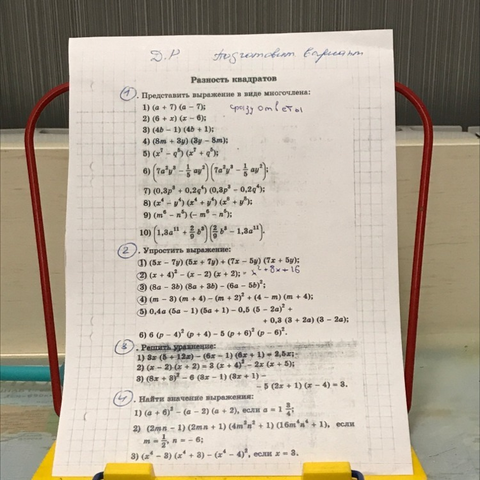 Д.Р Подготовит
Разность квадратов
1. Представить выражение в виде многочлена:
1) (a + 7) (a − 7); сразу ответы
2) (6 + x) (x − 6);
3) (4b − 1) (4b + 1);
4) (8m + 3y) (3y − 8m);
5) (x⁷ − q⁵) (x⁷ + q⁵);
6) (7a²y³ − 1/5 ay²) (7a²y³ − 1/5 ay²);
7) (0,3p³ + 0,2q⁴) (0,3p³ − 0,2q⁴);
8) (x⁴ − y⁴) (x⁴ + y⁴) (x⁸ + y⁸);
9) (m⁶ − n³) (−m⁶ − n³);
10) (1,3a¹¹ + 2/9 b³) (2/9 b³ − 1,3a¹¹).
2. Упростить выражение:
1) (5x − 7y) (5x + 7y) + (7x − 5y) (7x + 5y);
2) (x + 4)² − (x − 2) (x + 2); - x² + 8x + 16
3) (8a − 3b) (8a + 3b) − (6a − 5b)²;
4) (m − 3) (m + 4) − (m + 2)² + (4 − m) (m + 4);
5) 0,4a (5a − 1) (5a + 1) − 0,5 (5 − 2a)² +
+ 0,3 (3 + 2a) (3 − 2a);
6) 6 (p − 4)² (p + 4) − 5 (p + 6)² (p − 6)².
3. Решить уравнение:
1) 3x (5 + 12x) − (6x − 1) (6x + 1) = 2,5x;
2) (x − 2) (x + 2) = 3 (x + 4)² − 2x (x + 5);
3) (8x + 3)² − 6 (3x − 1) (3x + 1) −
− 5 (2x + 1) (x − 4) = 3.
4. Найти значение выражения:
1) (a + 6)² − (a − 2) (a + 2), если a = 1 3/4;
2) (2mn − 1) (2mn + 1) (4m²n² + 1) (16m⁴n⁴ + 1), если
m = 1/2, n = −6;
3) (x⁴ − 3) (x⁴ + 3) − (x⁴ − 4)², если x = 3.